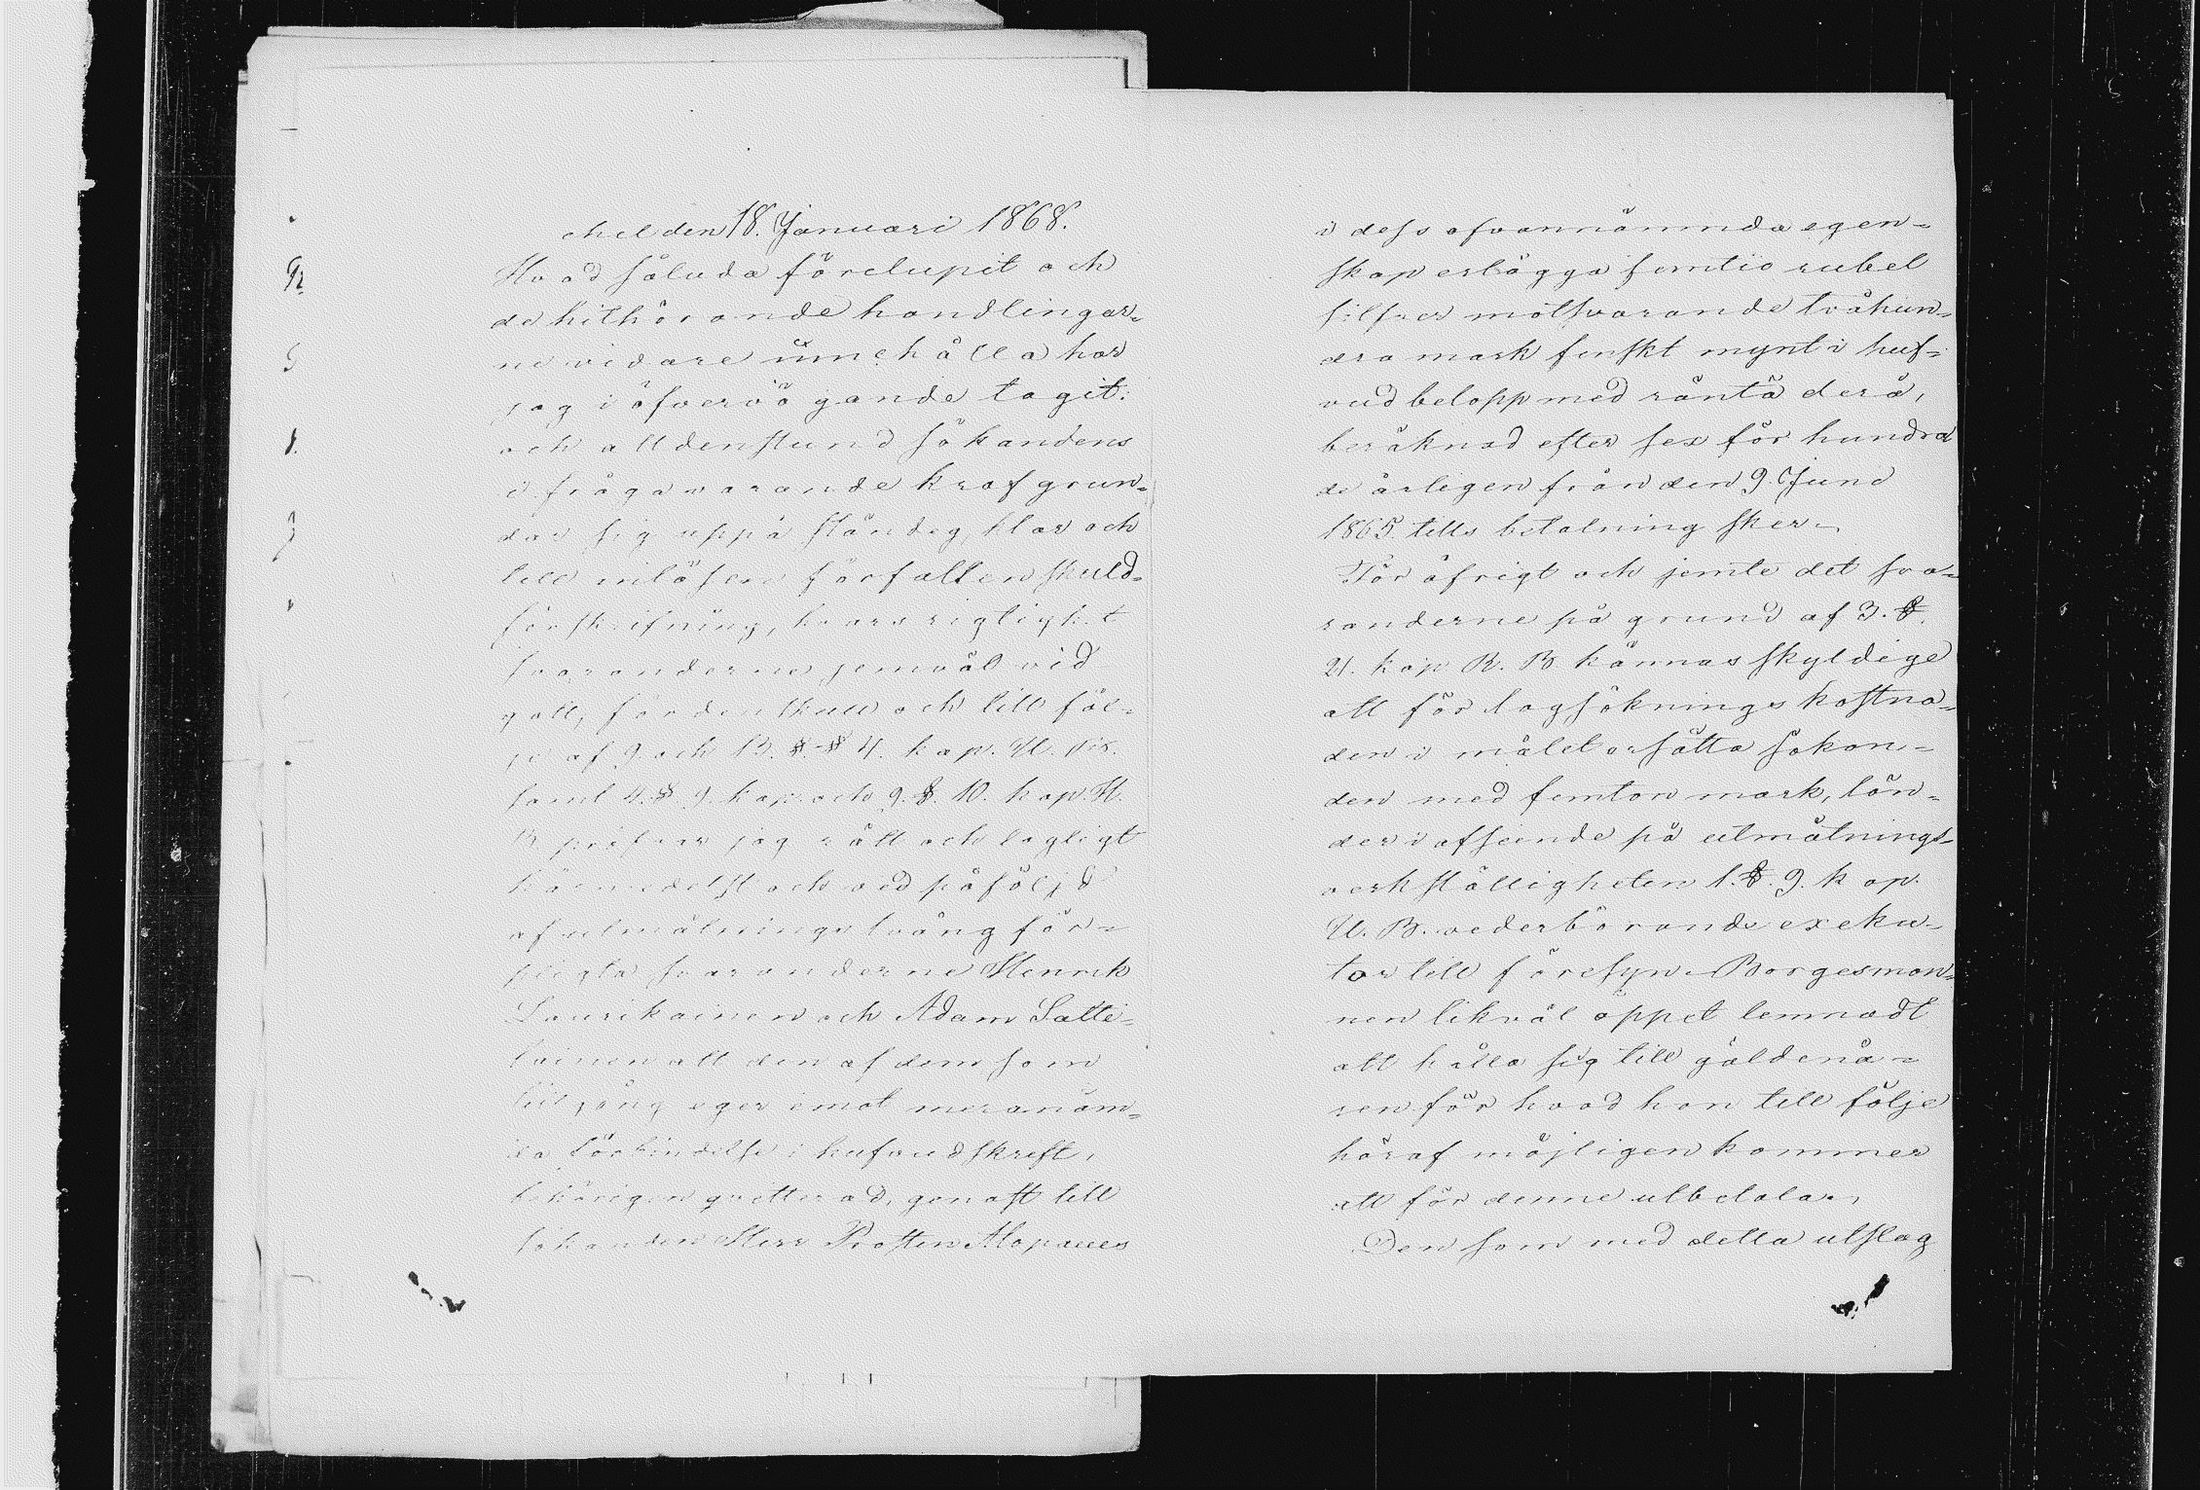 chel den 18. Januari 1868.
Hvad såluda förelupit och
de hithörande handlingar-
ne vidare innehålla har
jag i öfvervägande tagit:
och alldenstund sökandens
i frågavarande kraf grun-
dar sig uppå ständig, klar och
till inlösen förfallen skuld-
förskrifning, hvars rigtighet
svaranderne jemväl vid-
gått, fördenskull och till föl-
je af 9. och 13. §.§ 4. kap. U. B.
samt 4. § 9. kap. och 9. §. 10. kap. H.
B. pröfvar jag rätt och lagligt
härmedelst och vid påföljd
af utmätnings tvång för-
pligta svaranderne Henrik
Laurikainen och Adam Satti-
lainen att den af dem som
tillgång eger emot meranäm-
da förbindelse i hufvudskrift,
behörigen qvitterad, genast till
sökanden Herr Prosten Alopaeus
i dess ofvannämnda egen-
skap erlägga femtio rubel
silfver motsvarande tvåhun-
dra mark finskt mynt i huf-
vud belopp med ränta derå,
beräknad efter sex för hundra
de årligen från den 9. Juni
1865. tills betalning sker.
För öfrigt och jemte det sva-
randerne på grund af 3. §.
21. kap R. B. kännas skyldige
att för lagsöknings kostna-
den i målet ersätta sökan-
den med femton mark, län-
der i afseende på utmätnings-
verkställigheten 1. §. 9. kap.
U. B. vederbörande exeku-
tor till föresyn. Borgesman-
nen likväl öppet lemnadt
att hålla sig till gäldenä-
ren för hvad han till följe
häraf möjligen kommer
att för denne utbetala.
Den som med detta utslag